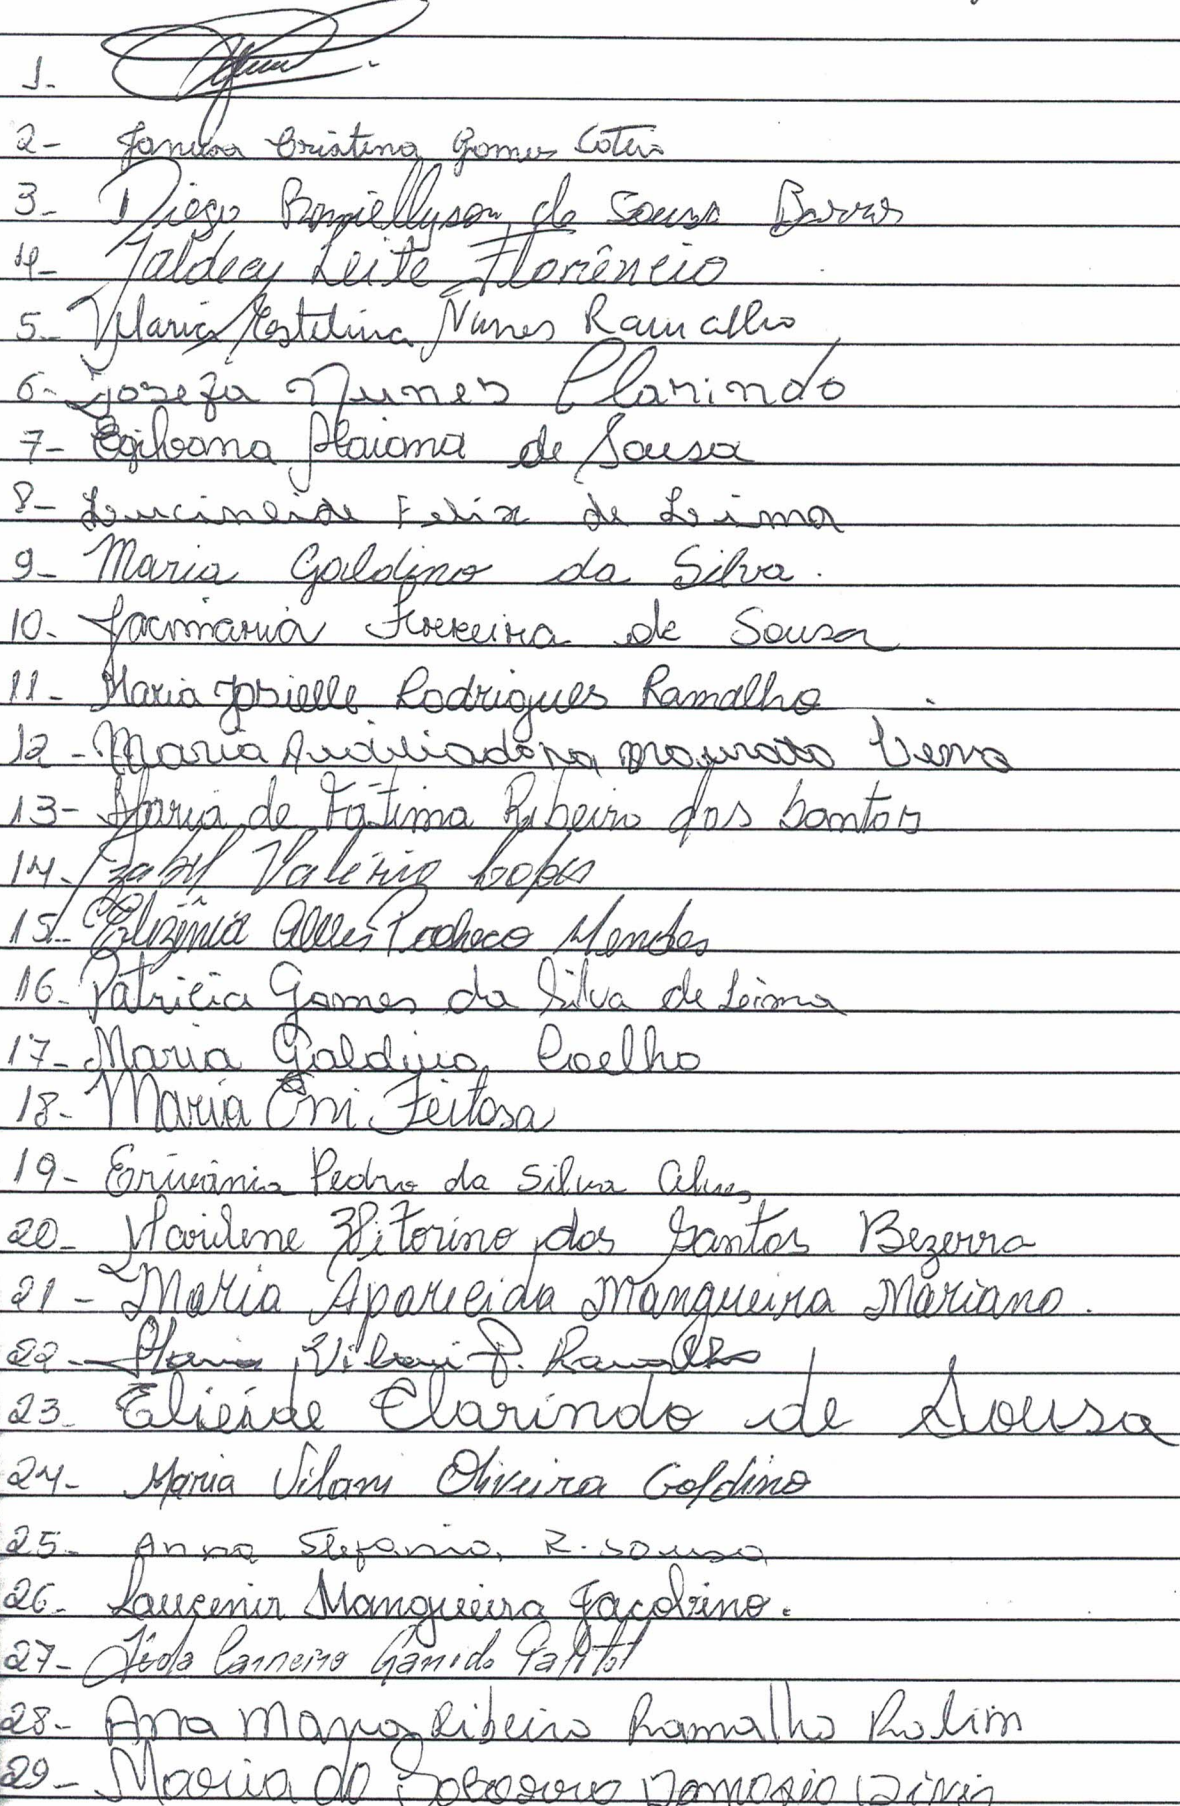 1-
2- Cristina Gomes
3- Diego de Sousa Barros
4- Leite Florêncio
5- Maria Estelina Nunes Ramalho
6- Josefa Nunes Clarindo
7- de Sousa
8- Lucineide Felix de Leima
9- Maria Galdino da Silva.
10- Jacimaria Ferreira de Sousa
11- Maria Josielle Rodrigues Ramalho
12- Maria Auxiliadora
13- Maria de Fátima Ribeiro dos Santos
14- Izabel Valério Lopes
15- Alves Pacheco Mendes
16- Patricia Gomes da Silva de Leima
17- Maria Galdino Coelho
18- Maria Feitosa
19- Erivânia Pedro da Silva Alves
20- Marilene Vitorino dos Santos Bezerra
21- Maria Aparecida Mangueira Mariano.
22- Maria Vilani P. Ramalho
23- Elieide Clarindo de Sousa
24- Maria Vilani Oliveira Goldino
25- Anna Stefania R. Sousa
26- Laucenir Mangueira Jacobino.
27- Carneiro
28- Ana Ribeiro Ramalho Rolim
29- Maria do Socorro